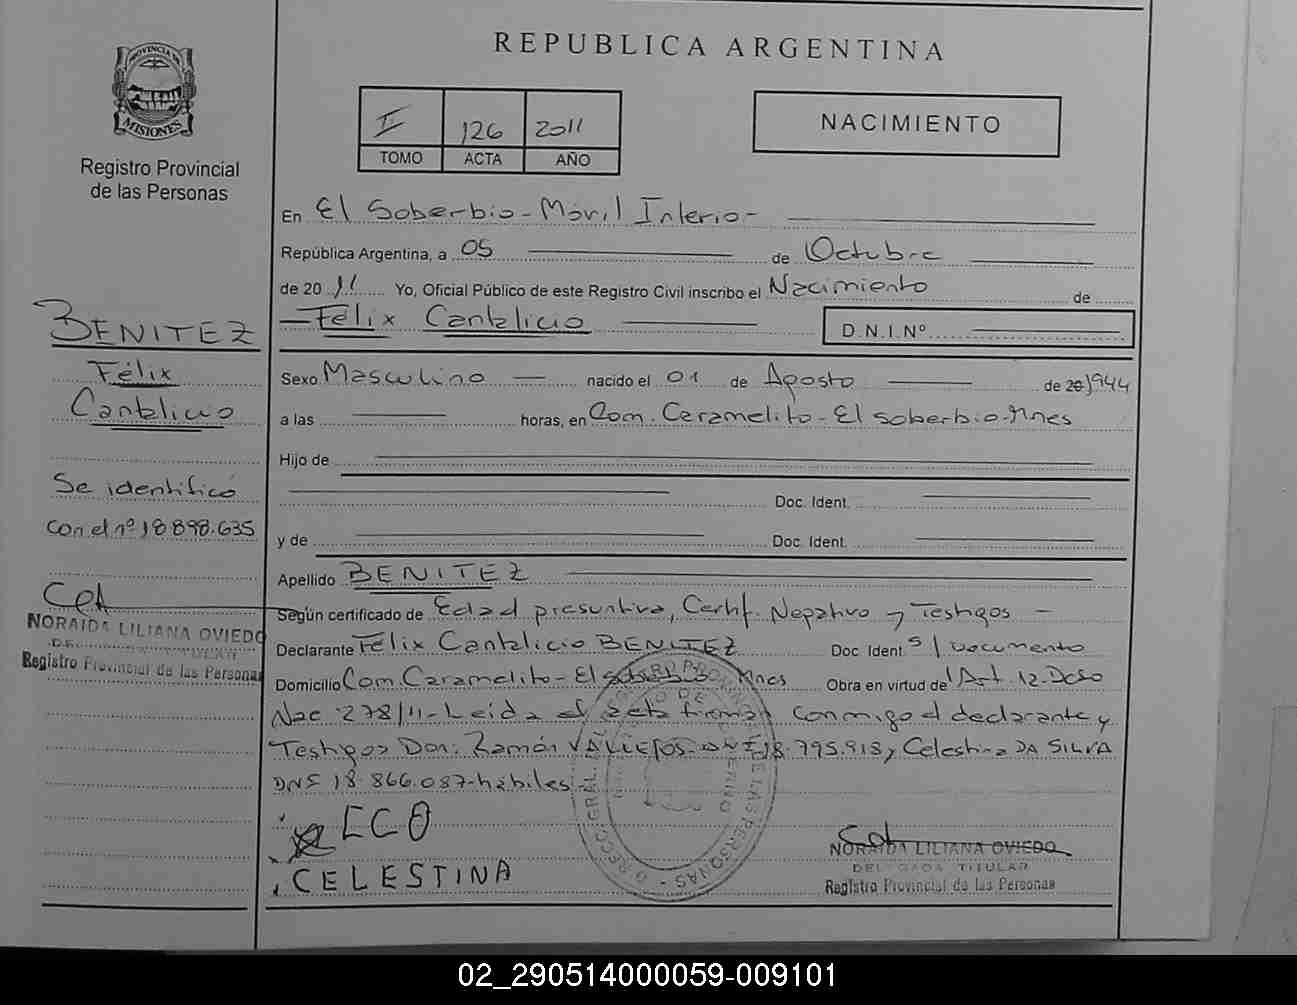 REPUBLICA ARGENTINA
PROVINCIA DE
MISIONES
Registro Provincial
de las Personas
II 126 2011
TOMO ACTA AÑO
NACIMIENTO
En El Soberbio - Móvil Interio -
República Argentina, a 05 de Octubre
de 20 11 Yo, Oficial Público de este Registro Civil inscribo el Nacimiento de
Félix Cantalicio D.N.I.Nº
BENITEZ
Félix
Cantalicio
Se identificó
con el nº 18898.635
NORAIDA LILIANA OVIEDO
TITULAR
Registro Provincial de las Personas
Sexo Masculino nacido el 01 de Agosto de 20 1944
a las horas, en Com. Caramelito - El soberbio - Mnes
Hijo de
Doc. Ident.
y de Doc. Ident.
Apellido BENITEZ
Según certificado de Edad presuntiva, Certif. Negativo y Testigos -
Declarante Félix Cantalicio BENITEZ Doc. Ident. s/ Documento
Domicilio Com. Caramelito - El soberbio Mnes Obra en virtud de Art. 12. Dcso
Nac 278/11 - Leída el acta firman conmigo el declarante y
Testigos Don. Ramón VALLEJOS - DNI 18.795.918, y Celestina DA SILVA
DNI 18.866.087 - hábiles -
CELESTINA
DIRECC. GRAL. DEL REGISTRO PROVINCIAL DE LAS PERSONAS
NORAIDA LILIANA OVIEDO
DELEGADA TITULAR
Registro Provincial de las Personas
02_290514000059-009101